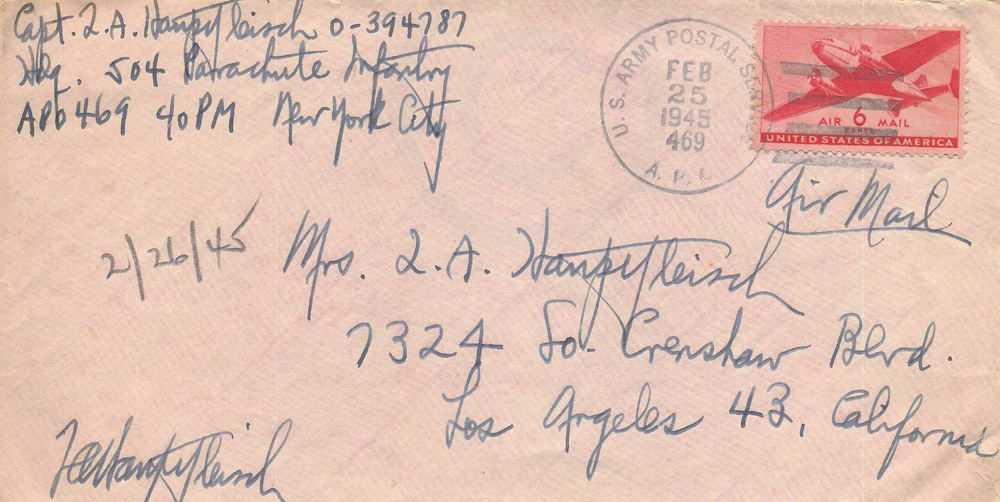 Capt. L. A. Hauptfleisch O-394787
Hdq. 504 Parachute Infantry
APO 469 % PM New York City
U. S. ARMY POSTAL SERVICE
FEB
25
1945
469
A. P. O.
AIR 6 MAIL
CENTS
UNITED STATES OF AMERICA
Air Mail
2/26/45
Mrs. L. A. Hauptfleisch
7324 So. Crenshaw Blvd.
Los Angeles 43, California
LAHauptfleisch